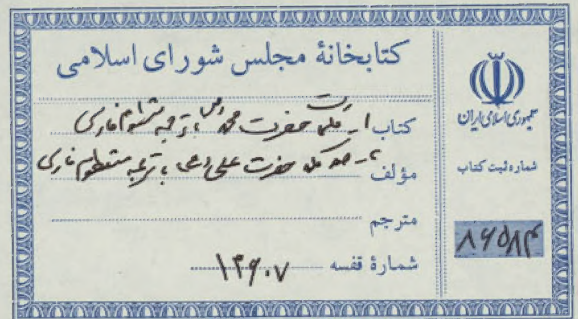 کتابخانهٔ مجلس شورای اسلامی
کتاب ۱ـ کلمات حضرت محمد (ص) با ترجمه منظوم فارسی
مؤلف ۲ـ صد کلمه حضرت علی (ع) با ترجمه منظوم فارسی
مترجم
شمارهٔ قفسه ۱۳۶۰۷
جمهوری اسلامی ایران
شماره ثبت کتاب
۸۶۵۸۳